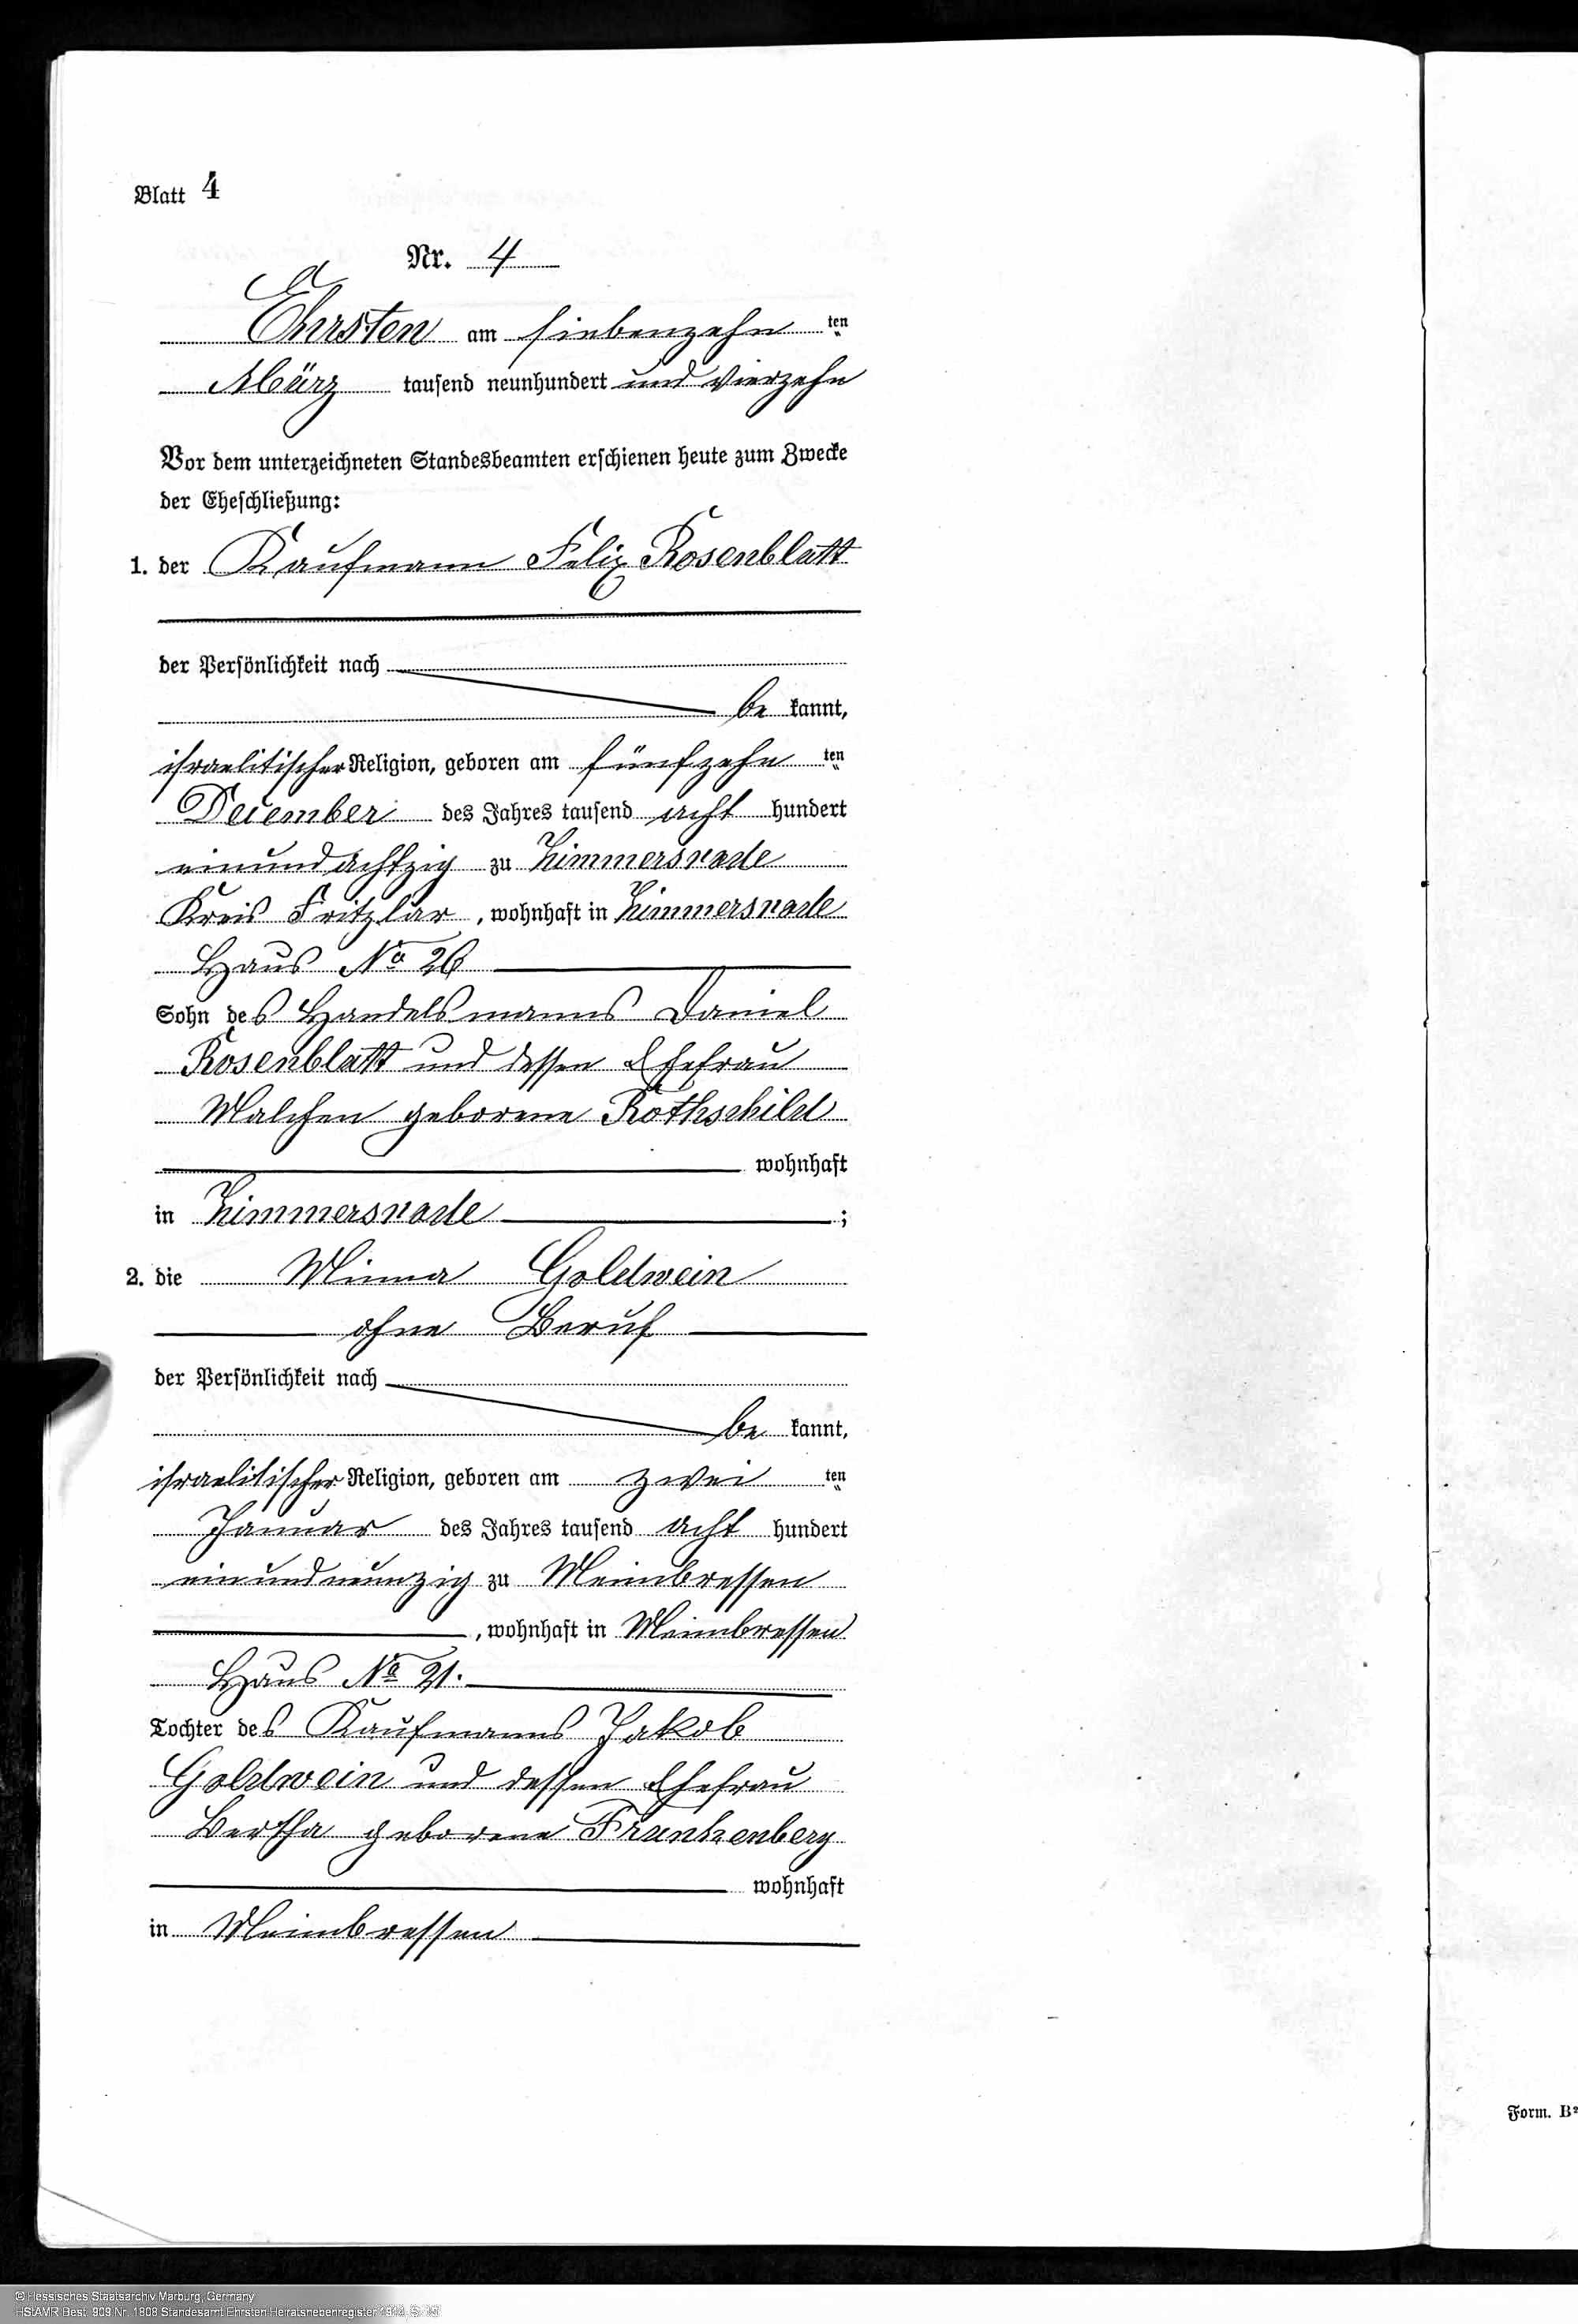 Blatt 4
Nr. 4
Ehrsten am siebenzehn ten
März tausend neunhundert und vierzehn
Vor dem unterzeichneten Standesbeamten erschienen heute zum Zwecke
der Eheschließung:
1. der Kaufmann Felix Rosenblatt
der Persönlichkeit nach
be kannt,
israelitischer Religion, geboren am fünfzehn ten
December des Jahres tausend acht hundert
einundachtzig zu Zimmersrode
Kreis Fritzlar, wohnhaft in Zimmersrode
Haus No 26
Sohn des Handelsmanns Daniel
Rosenblatt und dessen Ehefrau
Malchen geborene Rothschild
wohnhaft
in Zimmersrode ;
2. die Minna Goldwein
ohne Beruf
der Persönlichkeit nach
be kannt,
israelitischer Religion, geboren am zwei ten
Januar des Jahres tausend acht hundert
einundneunzig zu Meimbressen
, wohnhaft in Meimbressen
Haus No 21.
Tochter des Kaufmanns Jakob
Goldwein und dessen Ehefrau
Bertha geborene Frankenberg
wohnhaft
in Meimbressen
Form. B
© Hessisches Staatsarchiv Marburg, Germany
HStAMR Best. 909 Nr. 1808 Standesamt Ehrsten Heiratsnebenregister 1914, S.